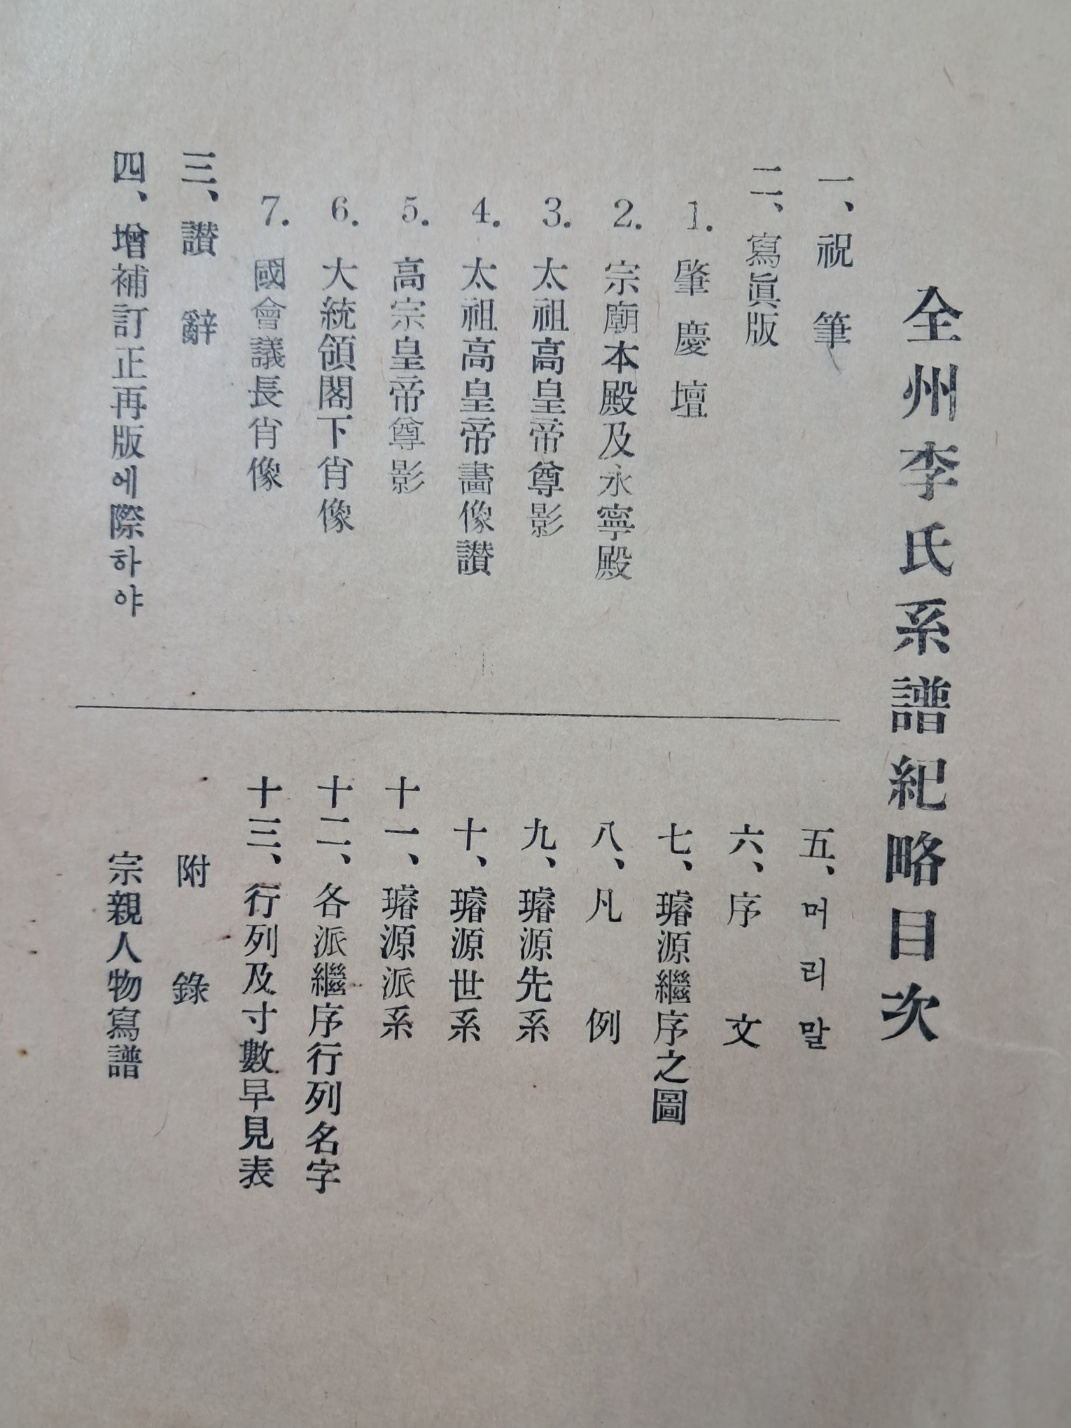 全州李氏系譜紀略目次
一、祝筆
二、寫眞版
1. 肇慶壇
2. 宗廟本殿及永寧殿
3. 太祖高皇帝尊影
4. 太祖高皇帝畵像讃
5. 高宗皇帝尊影
6. 大統領閣下肖像
7. 國會議長肖像
三、讃辭
四、增補訂正再版에際하야
五、머리말
六、序文
七、璿源繼序之圖
八、凡例
九、璿源先系
十、璿源世系
十一、璿源派系
十二、各派繼序行列名字
十三、行列及寸數早見表
附錄
宗親人物寫譜